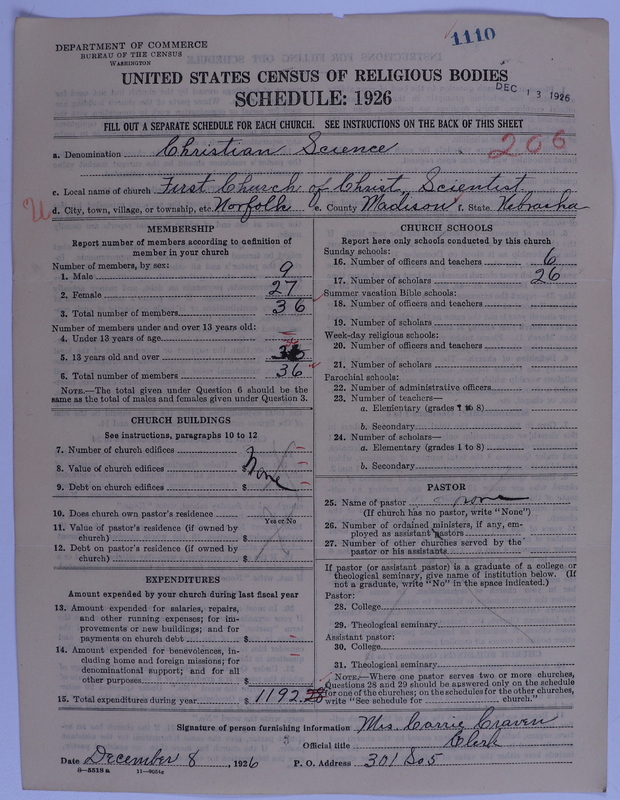 1110
DEPARTMENT OF COMMERCE
BUREAU OF THE CENSUS
WASHINGTON
UNITED STATES CENSUS OF RELIGIOUS BODIES
SCHEDULE: 1926
DEC 13 1926
FILL OUT A SEPARATE SCHEDULE FOR EACH CHURCH. SEE INSTRUCTIONS ON THE BACK OF THIS SHEET
a. Denomination Christian Science 206
c. Local name of church First Church of Christ, Scientist
d. City, town, village, or township, etc. Norfolk e. County Madison f. State Nebraska
MEMBERSHIP
Report number of members according to definition of
member in your church
Number of members, by sex:
1. Male 9
2. Female 27
3. Total number of members 36
Number of members under and over 13 years old:
4. Under 13 years of age
5. 13 years old and over 36
6. Total number of members 36
NOTE.—The total given under Question 6 should be the
same as the total of males and females given under Question 3.
CHURCH BUILDINGS
See instructions, paragraphs 10 to 12
7. Number of church edifices
8. Value of church edifices $ None
9. Debt on church edifices $
10. Does church own pastor's residence
Yes or No
11. Value of pastor's residence (if owned by
church) $
12. Debt on pastor's residence (if owned by
church) $
EXPENDITURES
Amount expended by your church during last fiscal year
13. Amount expended for salaries, repairs,
and other running expenses; for im-
provements or new buildings; and for
payments on church debt $
14. Amount expended for benevolences, in-
cluding home and foreign missions; for
denominational support; and for all
other purposes $
15. Total expenditures during year $ 1192.28
CHURCH SCHOOLS
Report here only schools conducted by this church
Sunday schools:
16. Number of officers and teachers 6
17. Number of scholars 26
Summer vacation Bible schools:
18. Number of officers and teachers
19. Number of scholars
Week-day religious schools:
20. Number of officers and teachers
21. Number of scholars
Parochial schools:
22. Number of administrative officers
23. Number of teachers—
a. Elementary (grades 1 to 8)
b. Secondary
24. Number of scholars—
a. Elementary (grades 1 to 8)
b. Secondary
PASTOR
25. Name of pastor none
(If church has no pastor, write "None")
26. Number of ordained ministers, if any, em-
ployed as assistant pastors
27. Number of other churches served by the
pastor or his assistants
If pastor (or assistant pastor) is a graduate of a college or
theological seminary, give name of institution below. (If
not a graduate, write "No" in the space indicated.)
Pastor:
28. College
29. Theological seminary
Assistant pastor:
30. College
31. Theological seminary
NOTE.—Where one pastor serves two or more churches,
Questions 28 and 29 should be answered only on the schedule
for one of the churches; on the schedules for the other churches,
write "See schedule for church."
Signature of person furnishing information Mrs Carrie Craven
Official title Clerk
Date December 8, 1926 P. O. Address 301 So 5
8—5518 a 11—9034c